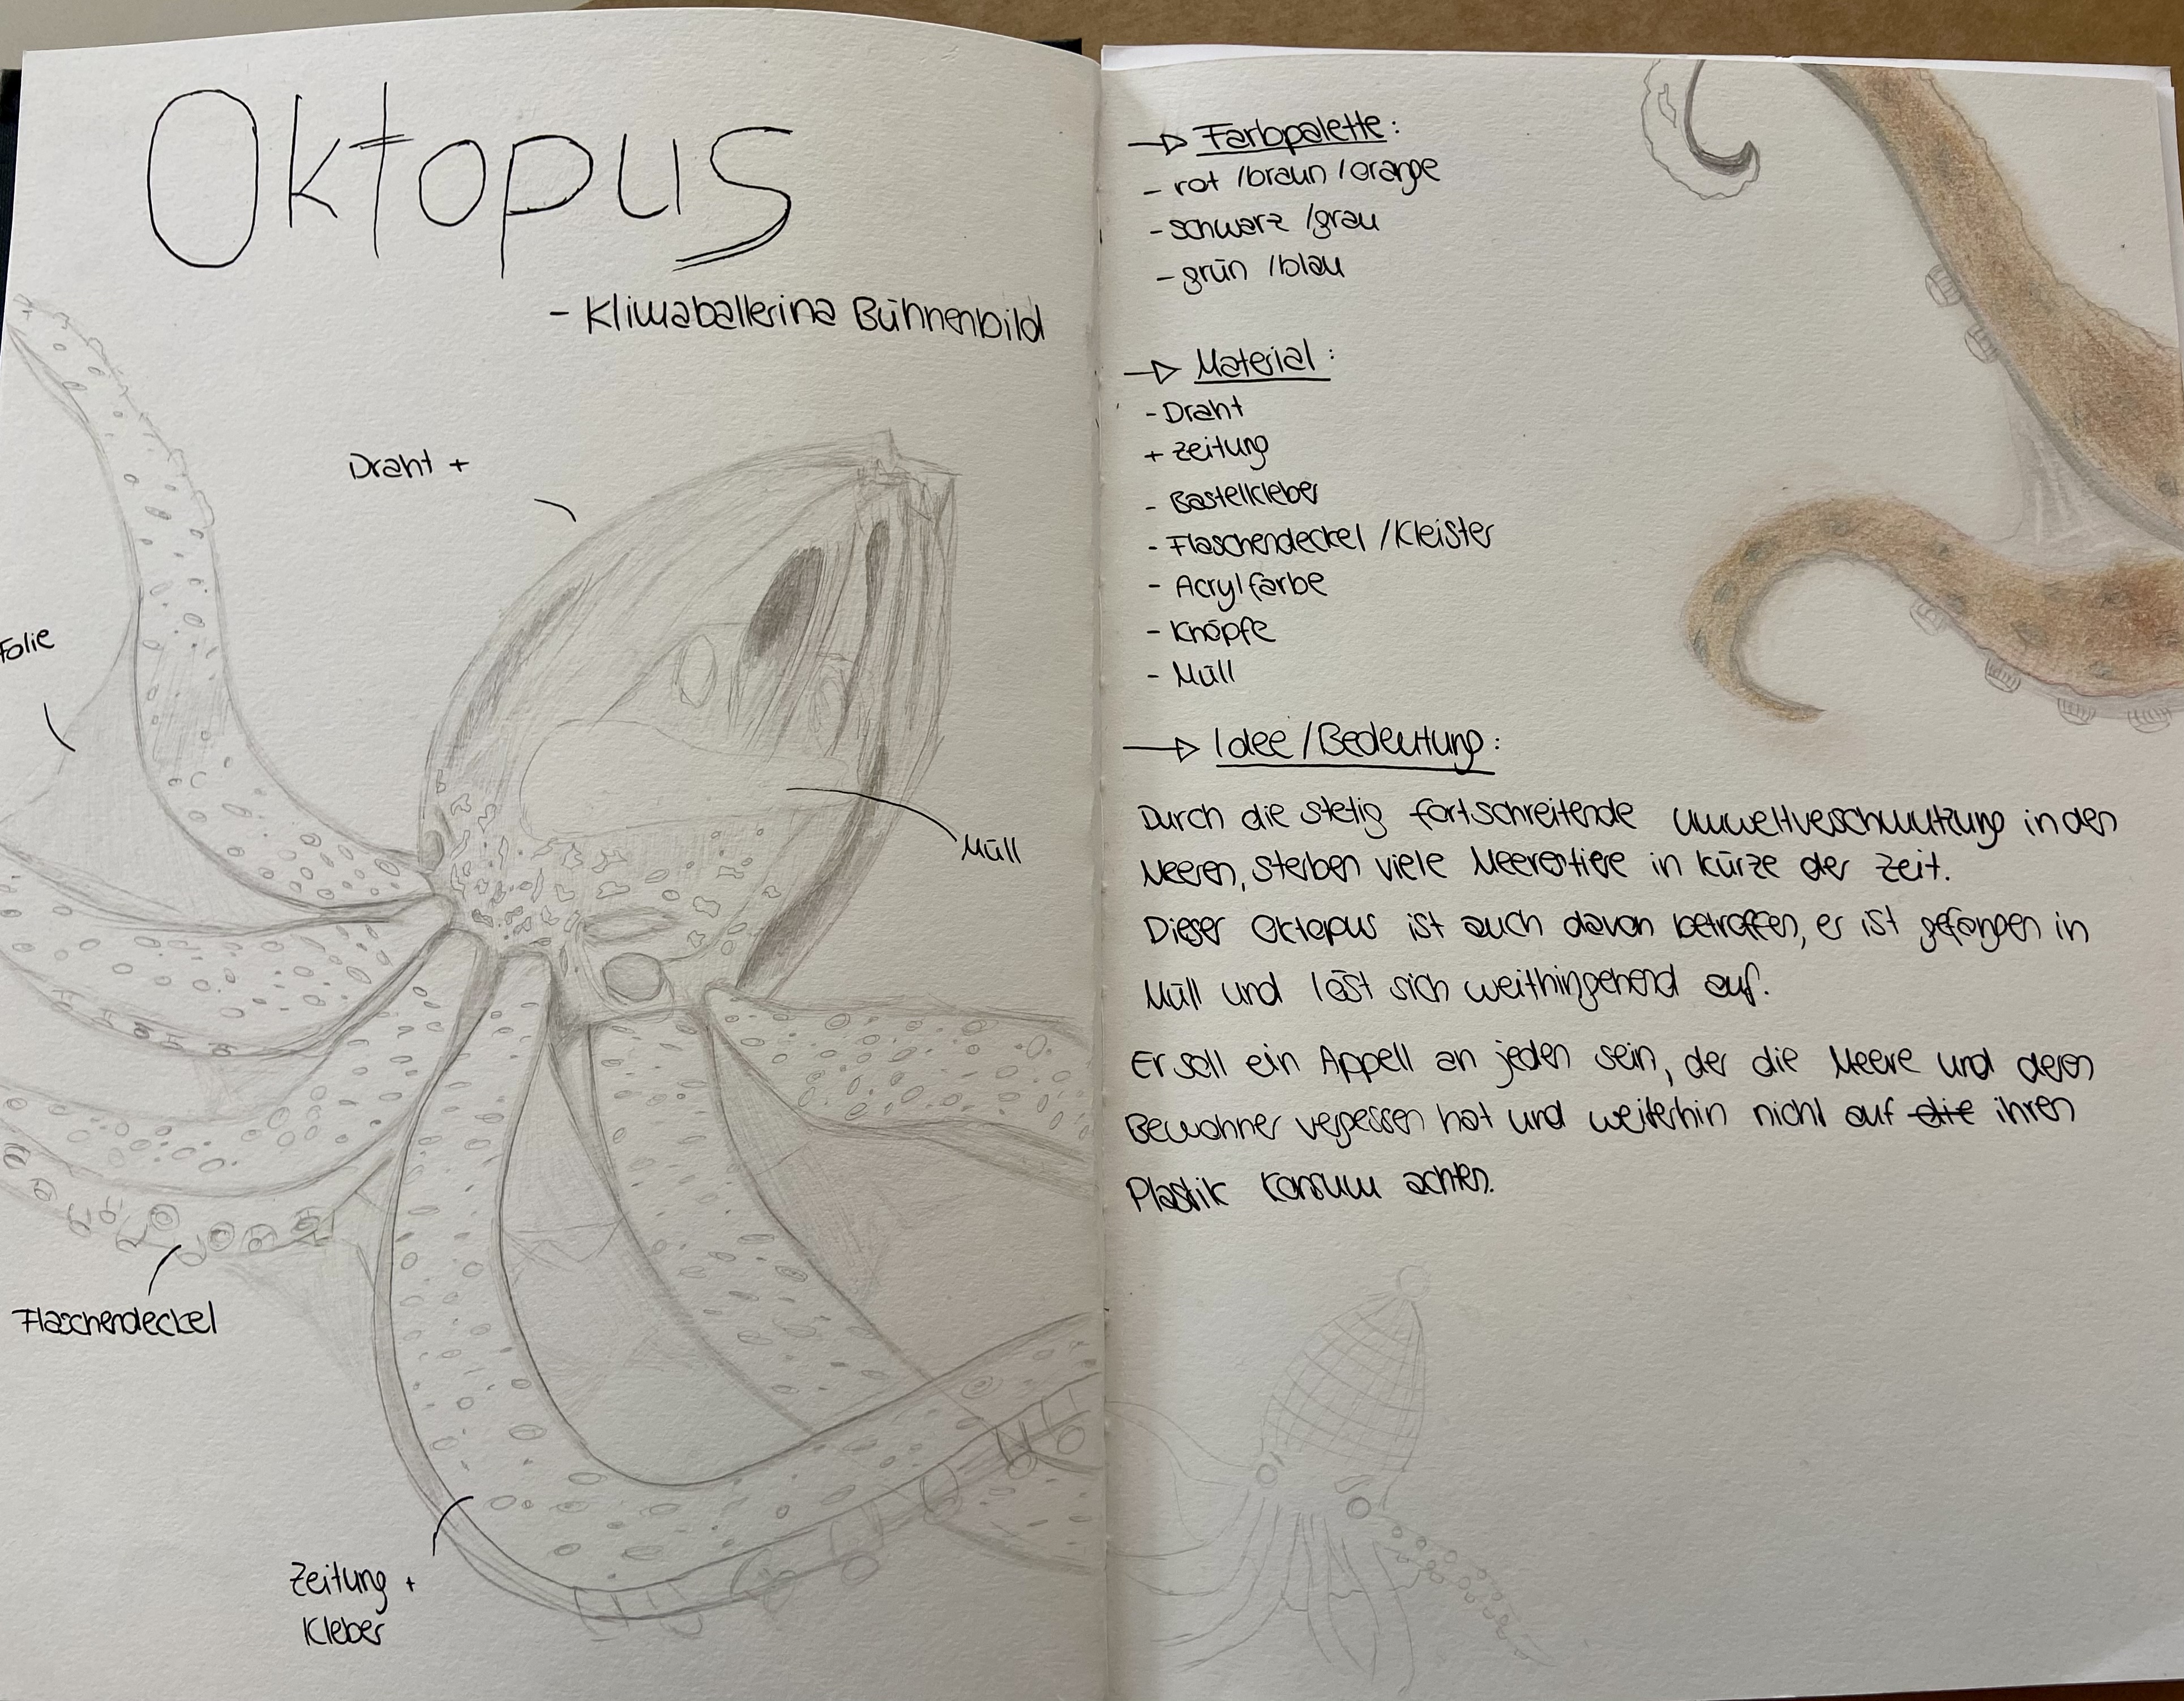 Oktopus
- Klimaballerina Bühnenbild
Draht +
Folie
Müll
Flaschendeckel
Zeitung +
Kleber
→ Farbpalette:
- rot / braun / orange
- schwarz / grau
- grün / blau
→ Material:
- Draht
+ Zeitung
- Bastelkleber
- Flaschendeckel / Kleister
- Acrylfarbe
- Knöpfe
- Müll
→ Idee / Bedeutung:
Durch die stetig fortschreitende Umweltverschmutzung in den
Meeren, sterben viele Meerestiere in kürze der Zeit.
Dieser Oktopus ist auch davon betroffen, er ist gefangen in
Müll und löst sich weithingehend auf.
Er soll ein Appell an jeden sein, der die Meere und deren
Bewohner vergessen hat und weiterhin nicht auf die ihren
Plastik Konsum achten.